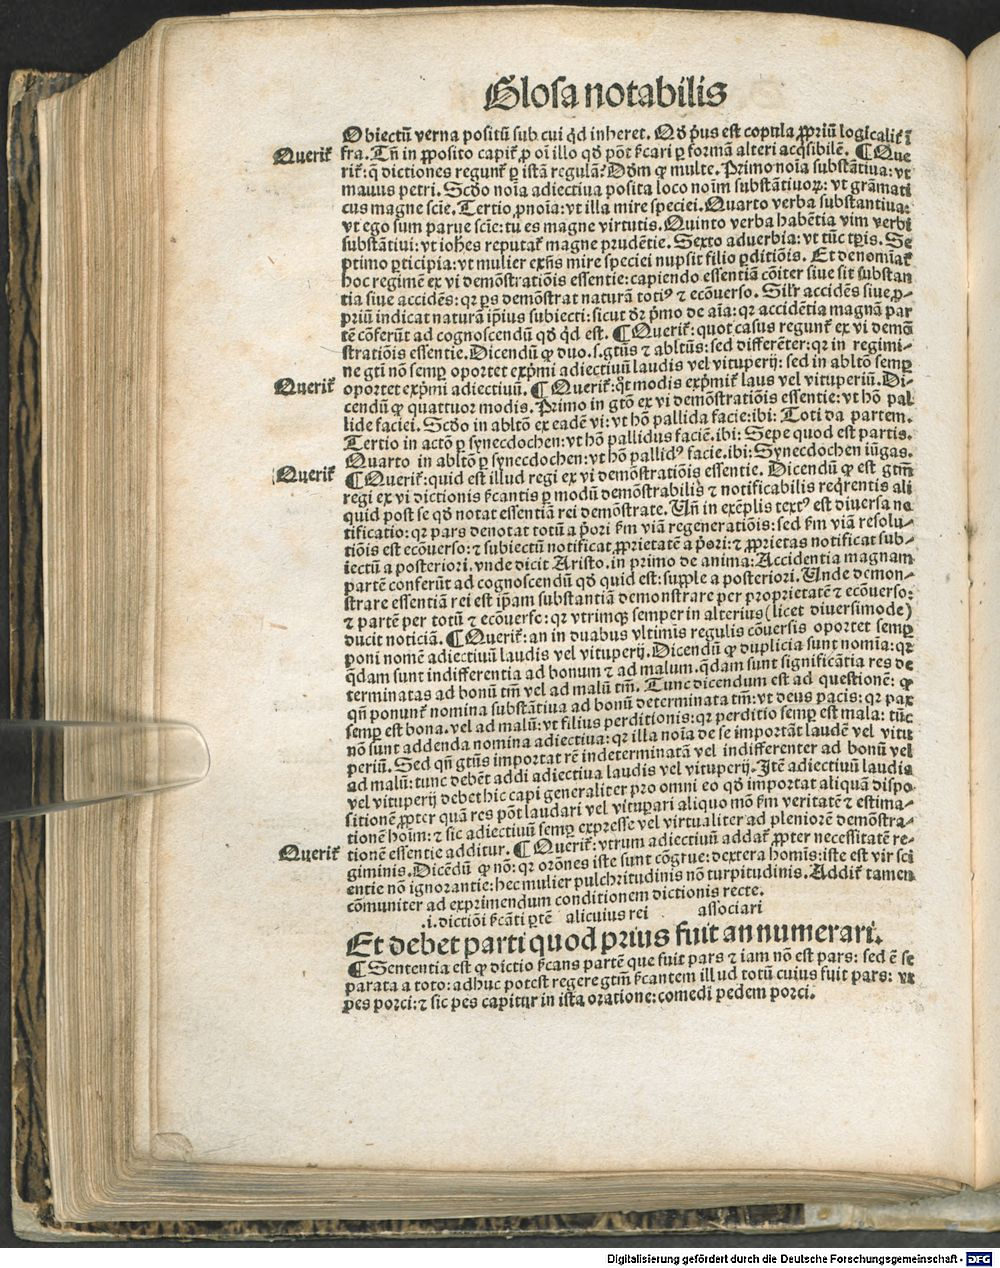 Glosa notabilis
Obiectū verna positū sub cui q̇d inheret. Qd̓ pͥus est copula ꝓpriū logicalit᷑ ī
Querit᷑
fra. Tn̄ in ꝓposito capit᷑ ꝓ oī illo qd̓ pōt ſcari ꝑ formā alteri acq̇sibilē. ¶ Que
rit᷑: q̄ dictiones regunt᷑ ꝑ istā regulā? Dd̓m ꝙ multe. Primo noīa substātiua: vt
mauus petri. Scd̓o noīa adiectiua posita loco noīm substātiuoꝝ: vt grāmati
cus magne scīe. Tertio ꝓnoīa: vt illa mire speciei. Quarto verba substantiua:
vt ego sum parue scīe: tu es magne virtutis. Quinto verba habētia vim verbi
substātiui: vt ioh̄es reputat᷑ magne prudētie. Sexto aduerbia: vt tūc tꝑis. Se
ptimo ꝑticipia: vt mulier exn̄s mire speciei nupsit filio ꝑditiōis. Et denomīat᷑
hoc regimē ex vi demōstratiōis essentie: capiendo essentiā cōiter siue sit substan
tia siue accidēs: qꝛ ꝑs demōstrat naturā totiꝰ ⁊ ecōuerso. Silr̄ accidēs siue ꝓ-
priū indicat naturā ip̄ius subiecti: sicut dr̄ pͥmo de aīa: qꝛ accidētia magnā par
tē cōferūt ad cognoscendū qd̓ q̇d est. ¶ Querit᷑: quot casus regunt᷑ ex vi demō
stratiōis essentie. Dicendū ꝙ duo. s. gtūs ⁊ abltūs: sed differēter: qꝛ in regimi-
ne gtī nō semꝑ oportet exp̄mi adiectiuū laudis vel vituperij: sed in abltō semꝑ
Querit᷑
oportet exp̄mi adiectiuū. ¶ Querit᷑: q̇t modis exp̄mit᷑ laus vel vituperiū. Di-
cendū ꝙ quattuor modis. Primo in gtō ex vi demōstratiōis essentie: vt hō pal
lide faciei. Scd̓o in abltō ex eadē vi: vt hō pallida facie: ibi: Toti da partem.
Tertio in actō ꝑ synecdochen: vt hō pallidus faciē. ibi: Sepe quod est partis.
Quarto in abltō ꝑ synecdochen: vt hō pallidꝰ facie. ibi: Synecdochen iūgas.
Querit᷑
¶ Querit᷑: quid est illud regi ex vi demōstratiōis essentie. Dicendū ꝙ est gtm̄
regi ex vi dictionis ſcantis ꝑ modū demōstrabilis ⁊ notificabilis req̇rentis ali
quid post se qd̓ notat essentiā rei demōstrate. Vn̄ in exēplis textꝰ est diuersa no
tificatio: qꝛ pars denotat totū a pͥori ſm viā regenerationis: sed ſm viā resolu-
tiōis est ecōuerso: ⁊ subiectū notificat ꝓprietatē a pͥori: ⁊ ꝓprietas notificat sub-
iectū a posteriori. vnde dicit Aristo. in primo de anima: Accidentia magnam
partē conferūt ad cognoscendū qd̓ quid est: supple a posteriori. Vnde demon-
strare essentiā rei est ip̄am substantiā demonstrare per proprietatē ⁊ ecōuerso:
⁊ partē per totū ⁊ ecōuerso: qꝛ vtrimqꝫ semper in alterius (licet diuersimode)
ducit noticiā. ¶ Querit᷑: an in duabus vltimis regulis cōuersis oportet semꝑ
poni nomē adiectiuū laudis vel vituperij. Dicendū ꝙ duplicia sunt nomīa: qꝛ
q̄dam sunt indifferentia ad bonum ⁊ ad malum. q̄dam sunt significātia res de
terminatas ad bonū tm̄ vel ad malū tm̄. Tunc dicendum est ad questionē: ꝙ
qn̄ ponunt᷑ nomina substātiua ad bonū determinata tm̄: vt deus pacis: qꝛ pax
semꝑ est bona. vel ad malū: vt filius perditionis: qꝛ perditio semꝑ est mala: tūc
nō sunt addenda nomina adiectiua: qꝛ illa noīa de se importāt laudē vel vitu
periū. Sed qn̄ gtūs importat rē indeterminatā vel indifferenter ad bonū vel
ad malū: tunc debēt addi adiectiua laudis vel vituperij. Itē adiectiuū laudis
vel vituperij debet hic capi generaliter pro omni eo qd̓ importat aliquā dispo
sitionē ꝓpter quā res pōt laudari vel vituꝑari aliquo mō ſm veritatē ⁊ estima-
tionē hoīm: ⁊ sic adiectiuū semꝑ expresse vel virtualiter ad pleniorē demōstra-
Querit᷑
tionē essentie additur. ¶ Querit᷑: vtrum adiectiuū addat᷑ ꝓpter necessitatē re-
giminis. Dicēdū ꝙ nō: qꝛ orōnes iste sunt cōgrue: dextera homīs: iste est vir sci
entie nō ignorantie: hec mulier pulchritudinis nō turpitudinis. Addit᷑ tamen
cōmuniter ad exprimendum conditionem dictionis recte.
.i. dictiōi ſcāti ꝑtē alicuius rei associari
Et debet parti quod prius fuit annumerari.
¶ Sententia est ꝙ dictio ſcans partē que fuit pars ⁊ iam nō est pars: sed ē se
parata a toto: adhuc potest regere gtm̄ ſcantem illud totū cuius fuit pars: vt
pes porci: ⁊ sic pes capitur in ista oratione: comedi pedem porci.
Digitalisierung gefördert durch die Deutsche Forschungsgemeinschaft - DFG